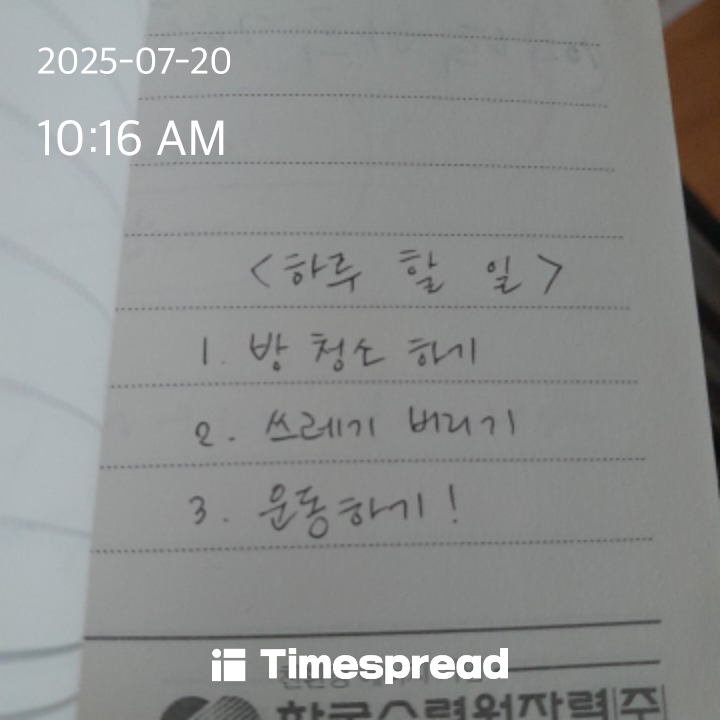 2025-07-20
10:16 AM
<하루 할 일>
1. 방 청소 하기
2. 쓰레기 버리기
3. 운동하기!
Timespread
한국수력원자력(주)